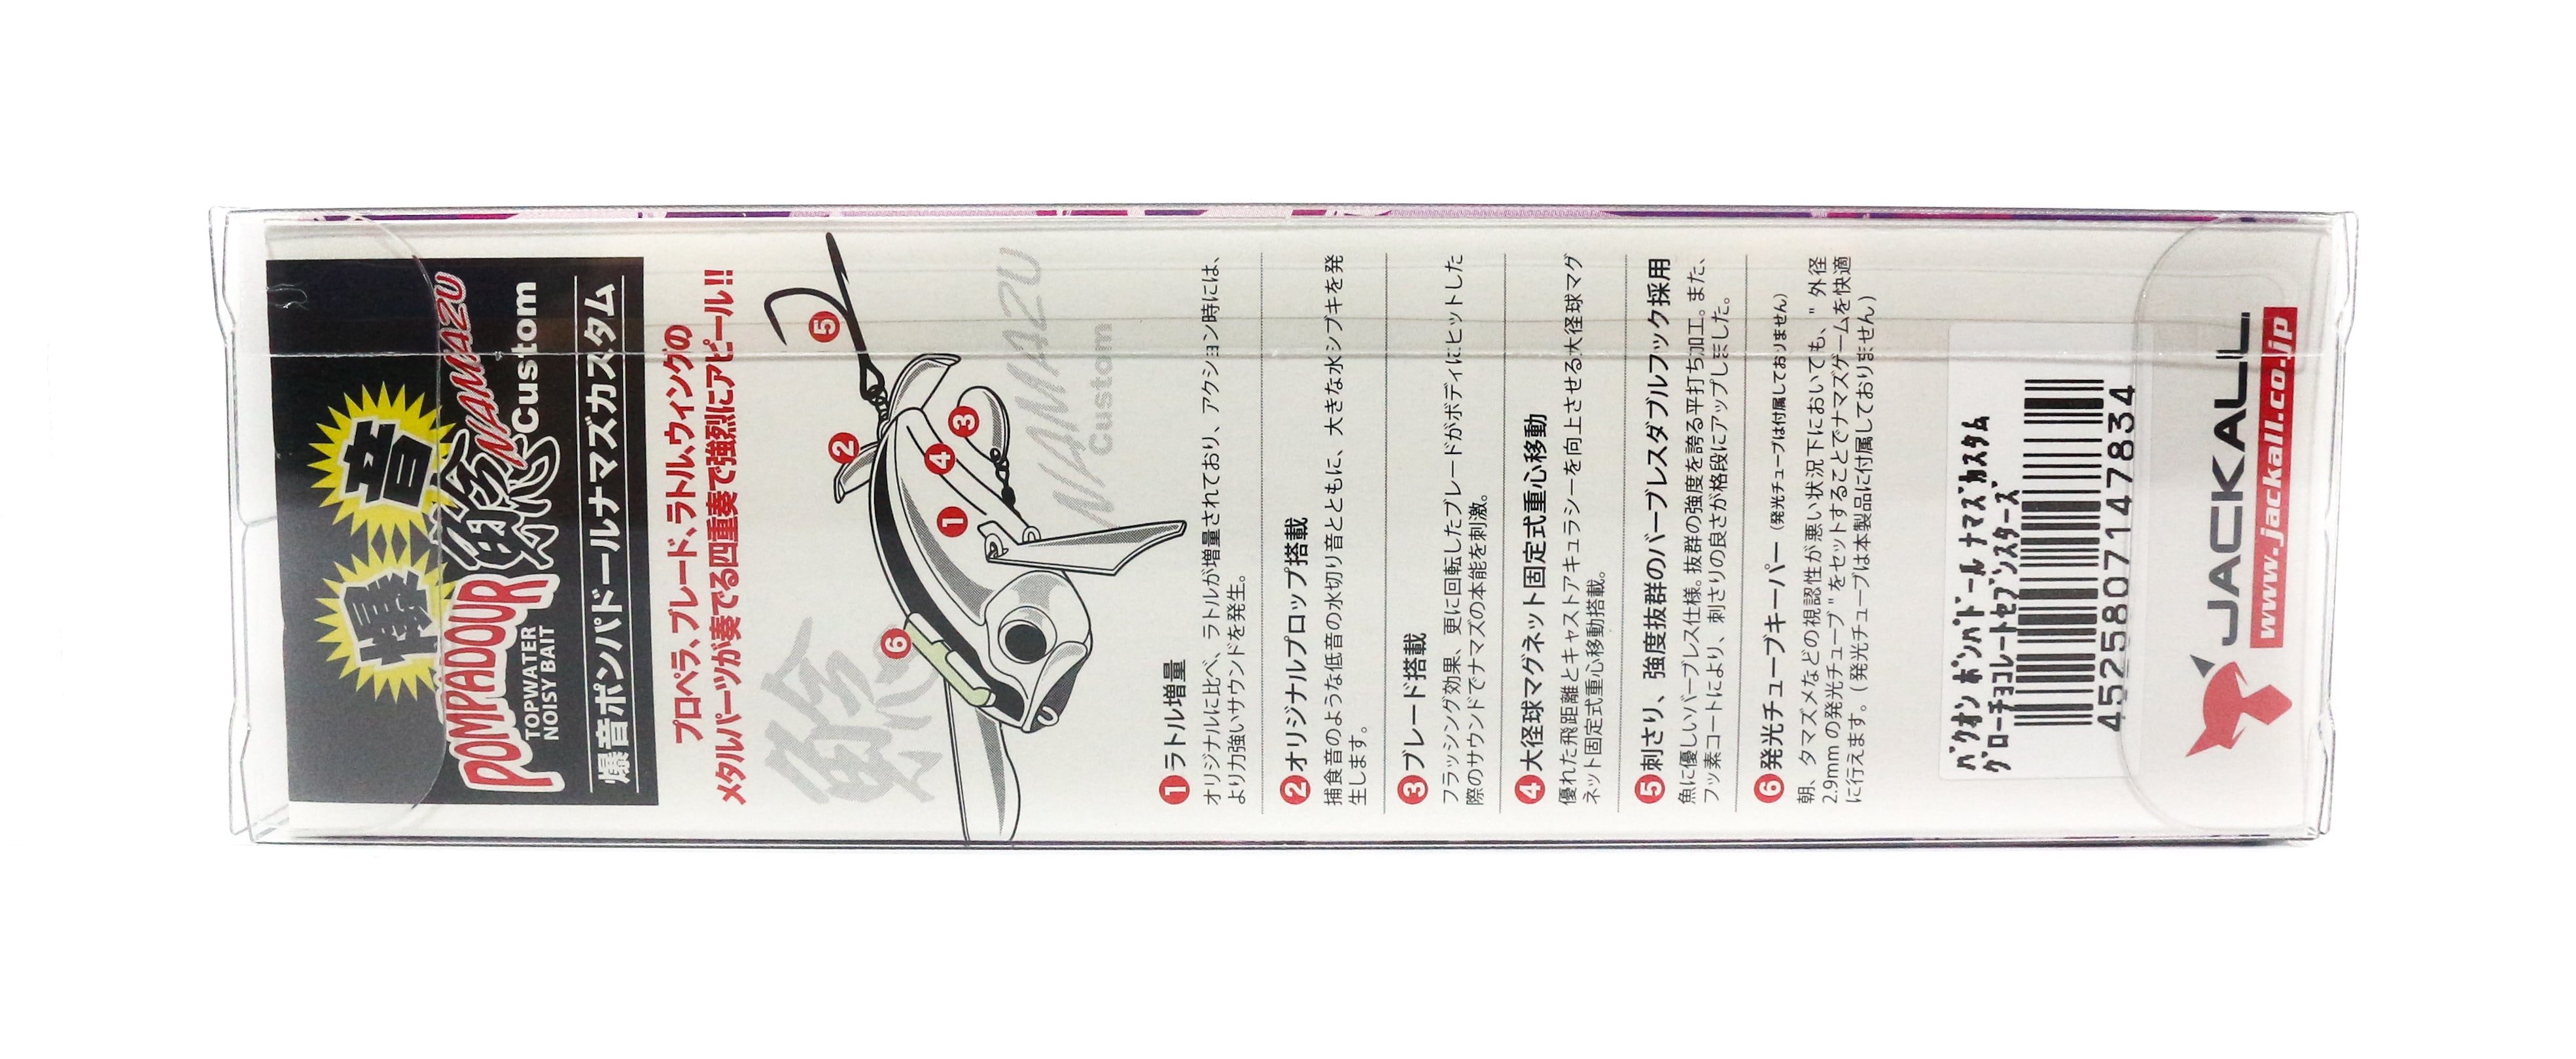 爆音
POMPADOUR
鯰
NAMAZU
Custom
TOPWATER
NOISY BAIT
爆音ポンパドールナマズカスタム
プロペラ、ブレード、ラトル、ウィングの
メタルパーツが奏でる四重奏で強烈にアピール!!
鯰
NAMAZU
Custom
1
2
3
4
5
6
1ラトル増量
オリジナルに比べ、ラトルが増量されており、アクション時には、
より力強いサウンドを発生。
2オリジナルプロップ搭載
捕食音のような低音の水切り音とともに、大きな水シブキを発
生します。
3ブレード搭載
フラッシング効果、更に回転したブレードがボディにヒットした
際のサウンドでナマズの本能を刺激。
4大径球マグネット固定式重心移動
優れた飛距離とキャストアキュラシーを向上させる大径球マグ
ネット固定式重心移動搭載。
5刺さり、強度抜群のバーブレスダブルフック採用
魚に優しいバーブレス仕様。抜群の強度を誇る平打ち加工。また、
フッ素コートにより、刺さりの良さが格段にアップしました。
6発光チューブキーパー（発光チューブは付属しておりません）
朝、夕マズメなどの視認性が悪い状況下においても、" 外径
2.9mm の発光チューブ " をセットすることでナマズゲームを快適
に行えます。( 発光チューブは本製品に付属しておりません )
ﾊﾞｸｵﾝ ﾎﾟﾝﾊﾟﾄﾞｰﾙ ﾅﾏｽﾞｶｽﾀﾑ
ｸﾞﾛｰﾁｮｺﾚｰﾄｾﾌﾞﾝｽﾀｰｽﾞ
4525807147834
JACKALL
www.jackall.co.jp